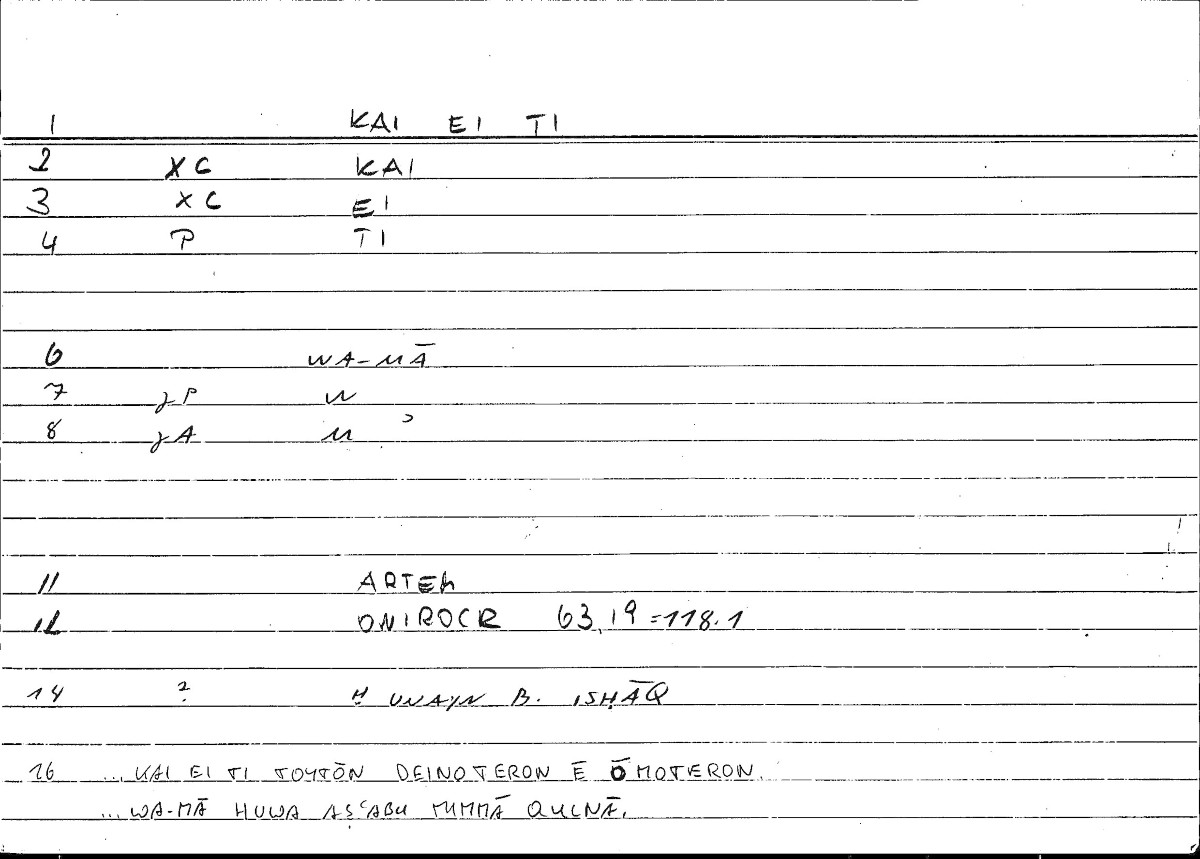 1 KAI EI TI
2 XC KAI
3 XC EI
4 P TI
6 WA-MĀ
7 ȷP W
8 ȷA M ɔ
11 ARTEM
12 ONIROCR 63,19=118.1
14 ? ḤUNAYN B. ISḤĀQ
16 ...KAI EI TI TOYTŌN DEINOTERON Ē ŌMOTERON.
...WA-MĀ HUWA AṢʿABU MIMMĀ QULNĀ.